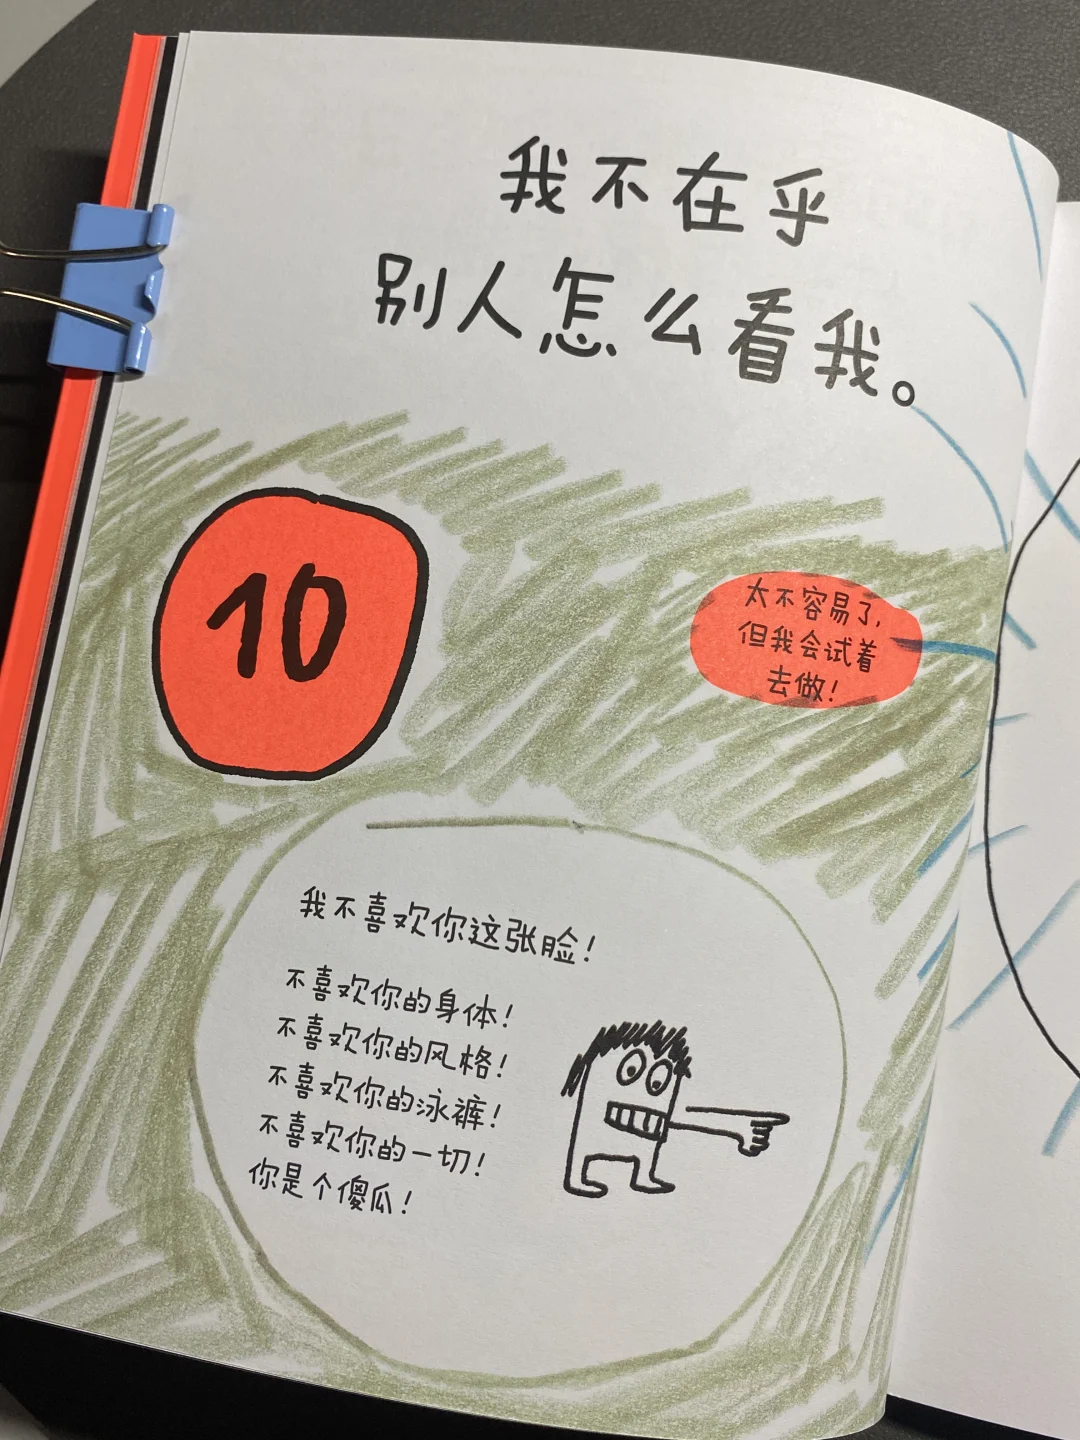 我不在乎
别人怎么看我。
10
太不容易了,
但我会试着
去做!
我不喜欢你这张脸!
不喜欢你的身体!
不喜欢你的风格!
不喜欢你的泳裤!
不喜欢你的一切!
你是个傻瓜!